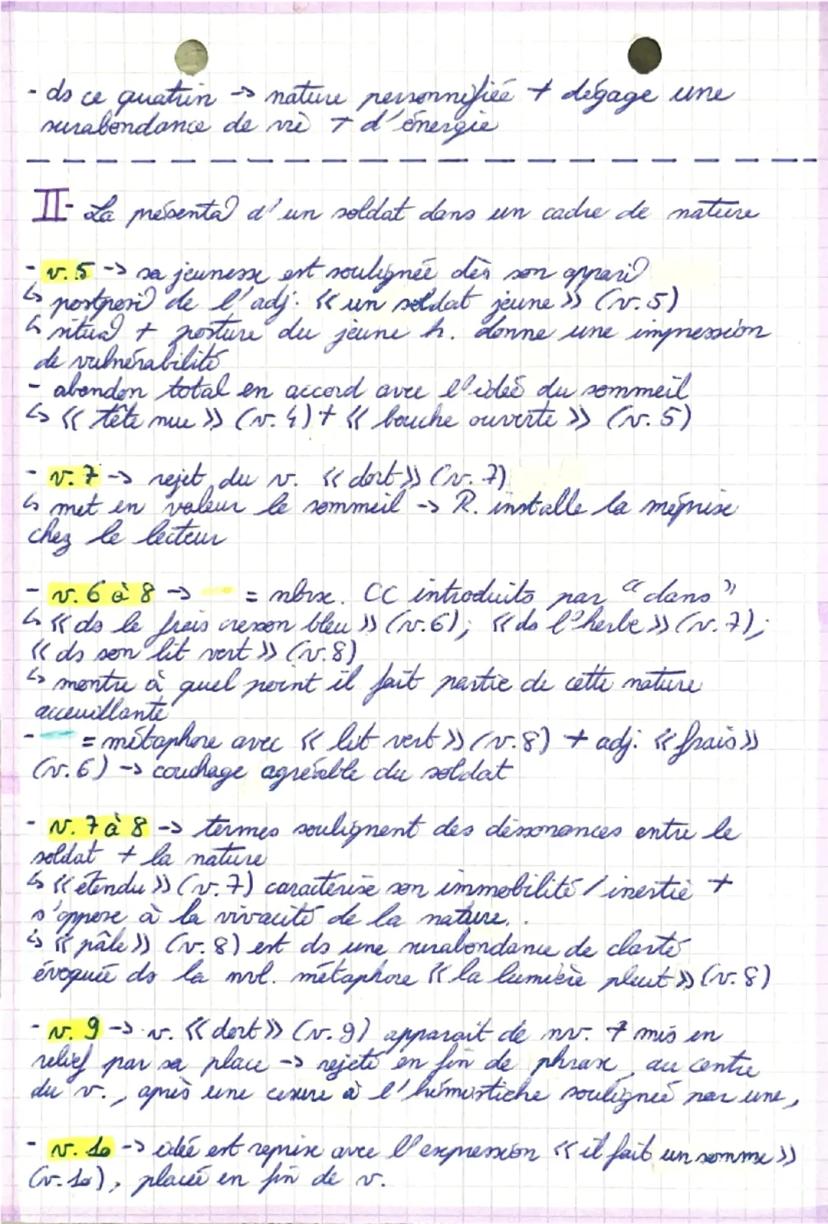 - ds ce quatrin -> nature personnifiée + dégage une
surabondance de vie + d'énergie
II- La présenta° d'un soldat dans un cadre de nature
- v.5 -> sa jeunesse est soulignée dès son appari°
↳ postposi° de l'adj. « un soldat jeune » (v.5)
↳ situa° + posture du jeune h. donne une impression
de vulnérabilité
- abandon total en accord avec l'idée du sommeil
↳ « tête nue » (v.4) + « bouche ouverte » (v.5)
- v.7 -> rejet du v. « dort » (v.7)
↳ met en valeur le sommeil -> R. installe la méprise
chez le lecteur
- v.6 à 8 -> = nbrse. CC introduits par "dans"
↳ « ds le frais cresson bleu » (v.6); « ds l'herbe » (v.7);
« ds son lit vert » (v.8)
↳ montre à quel point il fait partie de cette nature
acceuillante
- = métaphore avec « lit vert » (v.8) + adj. « frais »
(v.6) -> couchage agréable du soldat
- v.7 à 8 -> termes soulignent des dissonances entre le
soldat + la nature
↳ « étendu » (v.7) caractérise son immobilité / inertie +
s'oppose à la vivacité de la nature.
↳ « pâle » (v.8) est ds une surabondance de clarté
évoquée ds la nvl. métaphore « la lumière pleut » (v.8)
- v.9 -> v. « dort » (v.9) apparait de nv. + mis en
relief par sa place -> rejeté en fin de phrase, au centre
du v., après une césure à l'hémistiche soulignée par une,
- v.10 -> idée est reprise avec l'expression « il fait un somme »
(v.10), placée en fin de v.